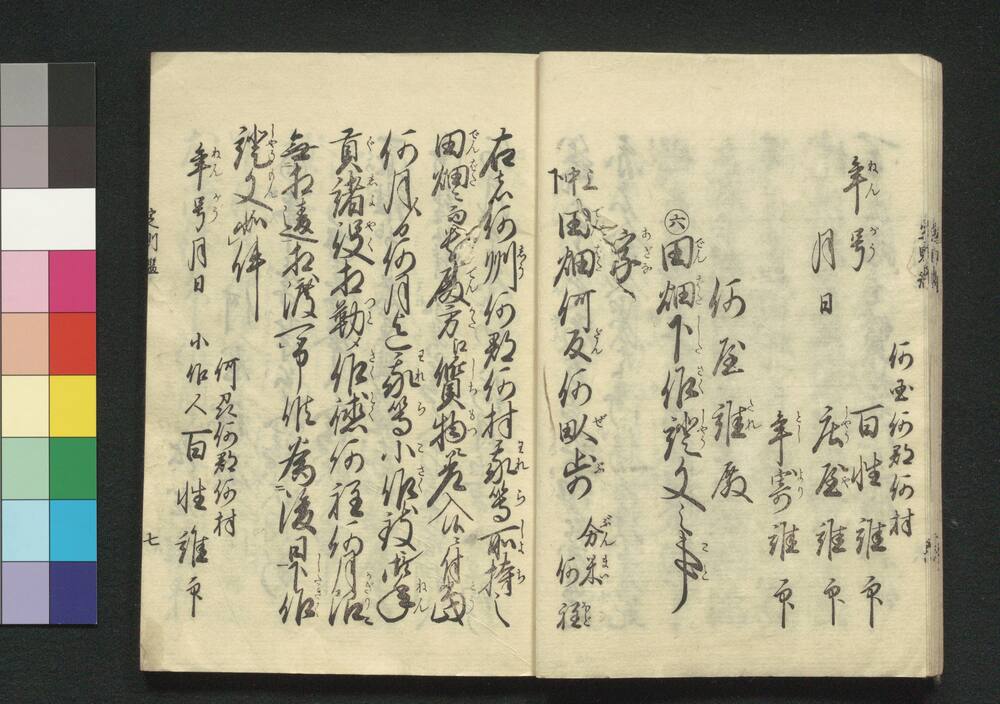 何国何郡何村
年号　百姓　誰印
月日　庄屋　誰印
年寄　誰印
何屋　誰殿
㊅田畑下作證文之事
字
上中下田畑何反何畝歩　分米何程
右者何州何郡何村我等所持之
田畑也貴殿方江質物差入候ニ付当
何月ゟ何月迄我等小作致
貢諸役相勤作徳何程何月限
無相違相渡可申候為後日下作
證文如件
年号月日
何国何郡何村
小作人百姓誰印
七